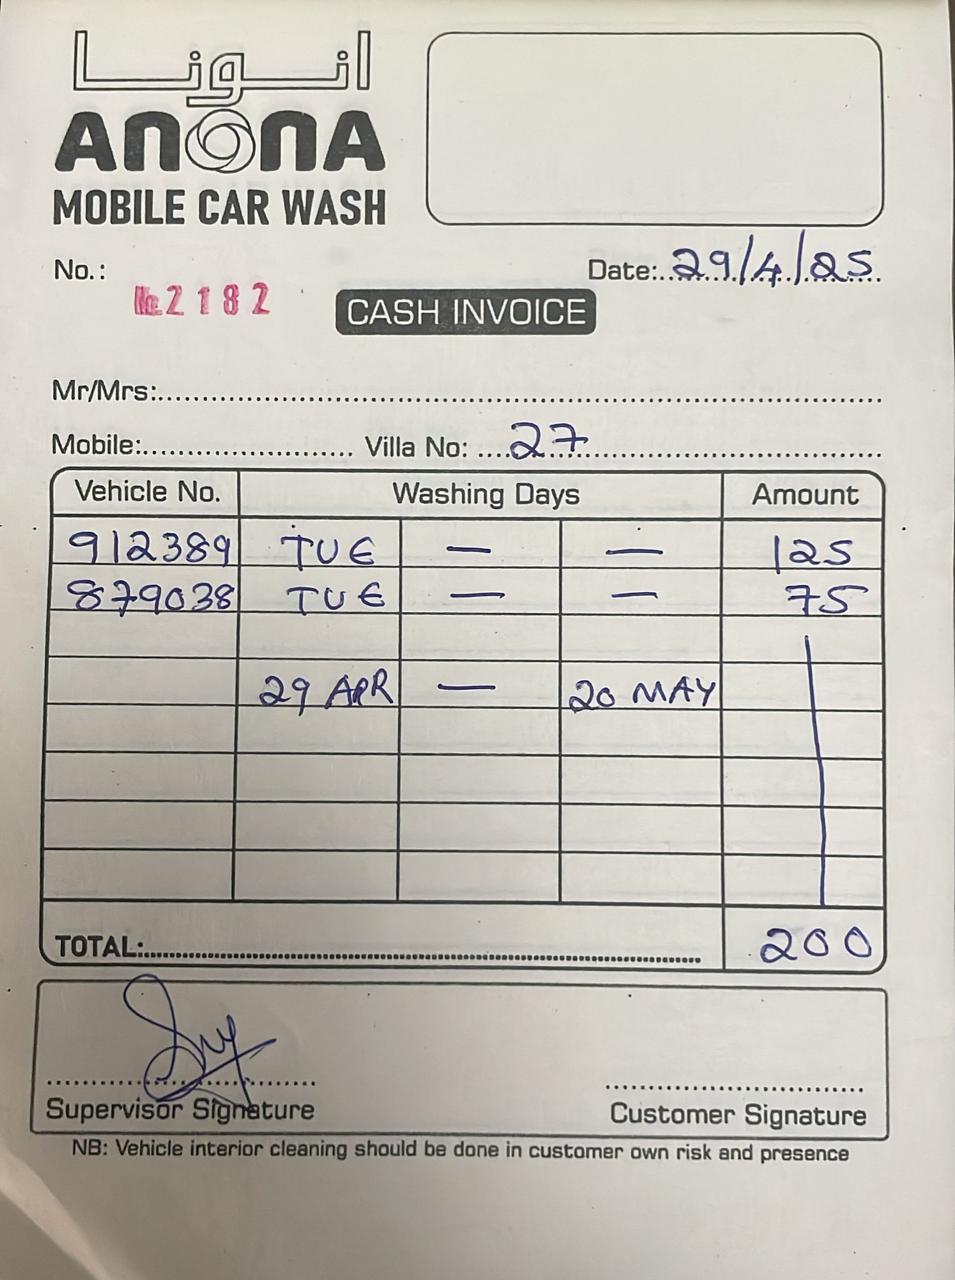 انونا
ANONA
MOBILE CAR WASH
No.:
№ 2182
Date: 29/4/25
CASH INVOICE
Mr/Mrs:
Mobile: Villa No: 27
Vehicle No. Washing Days Amount
912389 TUE — — 125
879038 TUE — — 75
29 APR — 20 MAY
TOTAL: 200
Supervisor Signature Customer Signature
NB: Vehicle interior cleaning should be done in customer own risk and presence